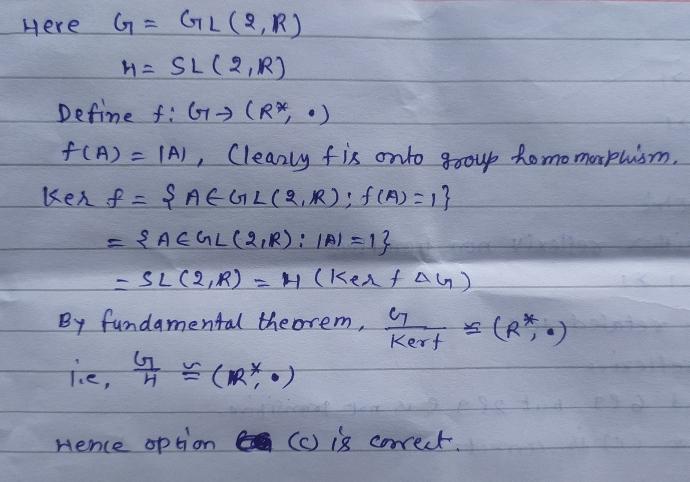 Here G = GL(2,R)
H = SL(2,R)
Define f: G → (R*, •)
f(A) = |A|, Clearly f is onto group homomorphism.
Ker f = {A ∈ GL(2,R); f(A) = 1}
= {A ∈ GL(2,R): |A| = 1}
= SL(2,R) = H (Ker f Δ G)
By fundamental theorem, G/Ker f ≅ (R*, •)
i.e, G/H ≅ (R*, •)
Hence option (c) is correct.